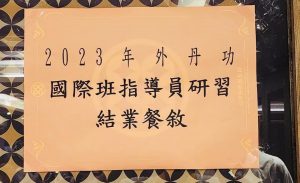 2023年外丹功
國際班指導員研習
結業餐敘